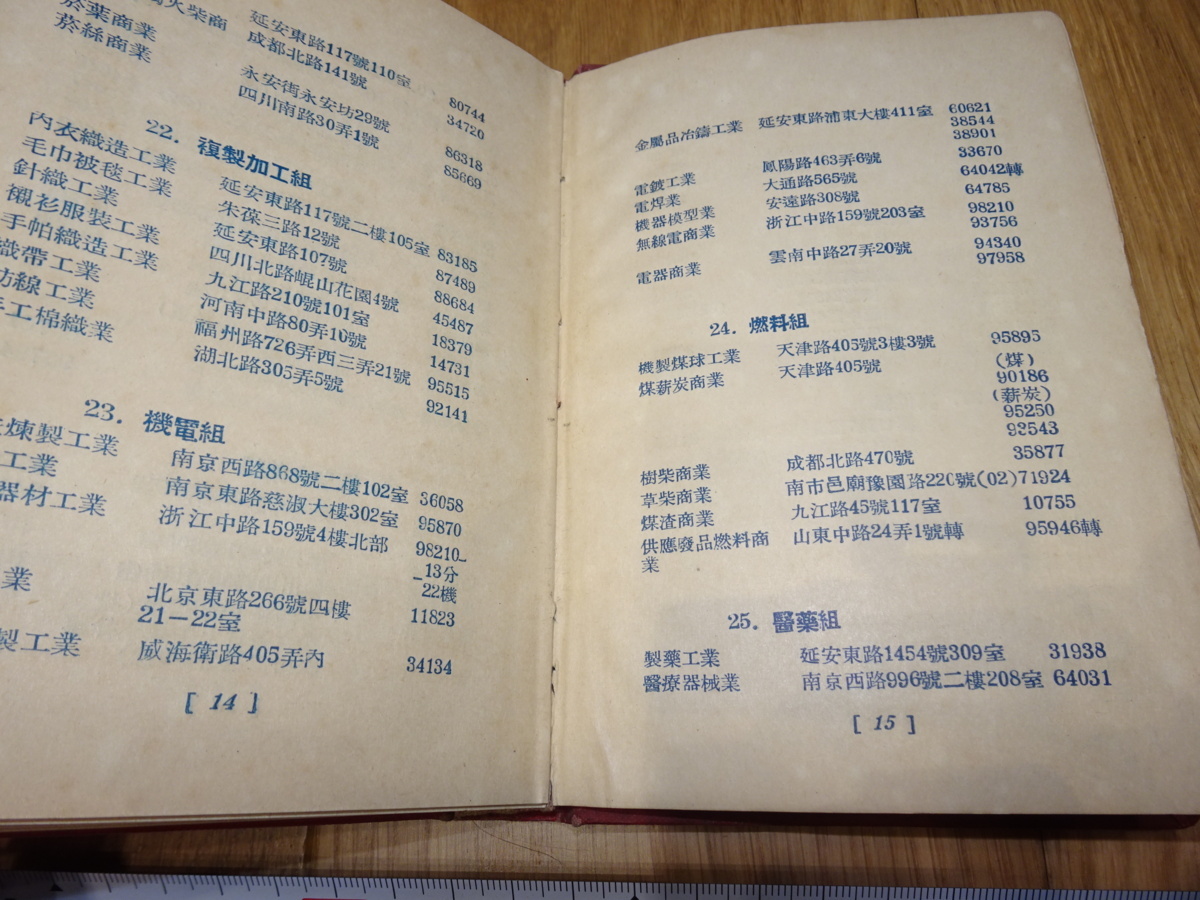 火柴商 延安東路117號110室 80744
菸葉商業 成都北路141號 34720
菸絲商業 永安街永安坊29號 86318
四川南路30弄1號 85669
22. 複製加工組
內衣織造工業 延安東路117號二樓105室 83185
毛巾被毯工業 朱葆三路12號 87489
針織工業 延安東路107號 88684
襯衫服裝工業 四川北路崐山花園4號 45487
手帕織造工業 九江路210號101室 18379
織帶工業 河南中路80弄10號 14731
紡線工業 福州路726弄西三弄21號 95515
手工棉織業 湖北路305弄5號 92141
23. 機電組
煉製工業 南京西路868號二樓102室 36058
工業 南京東路慈淑大樓302室 95870
器材工業 浙江中路159號4樓北部 98210-
-13分
-22機
業 北京東路266號四樓 11823
21-22室
製工業 威海衛路405弄內 34134
[ 14 ]
金屬品冶鑄工業 延安東路浦東大樓411室 60621
38544
38901
電鍍工業 鳳陽路463弄6號 33670
電焊業 大通路565號 64042轉
機器模型業 安遠路308號 64785
無線電商業 浙江中路159號203室 98210
93756
電器商業 雲南中路27弄20號 94340
97958
24. 燃料組
機製煤球工業 天津路405號3樓3號 95895
煤薪炭商業 天津路405號 (煤)
90186
(薪炭)
95250
92543
樹柴商業 成都北路470號 35877
草柴商業 南市邑廟豫園路220號(02)71924
煤渣商業 九江路45號117室 10755
供應廢品燃料商 山東中路24弄1號轉 95946轉
業
25. 醫藥組
製藥工業 延安東路1454號309室 31938
醫療器械業 南京西路996號二樓208室 64031
[ 15 ]